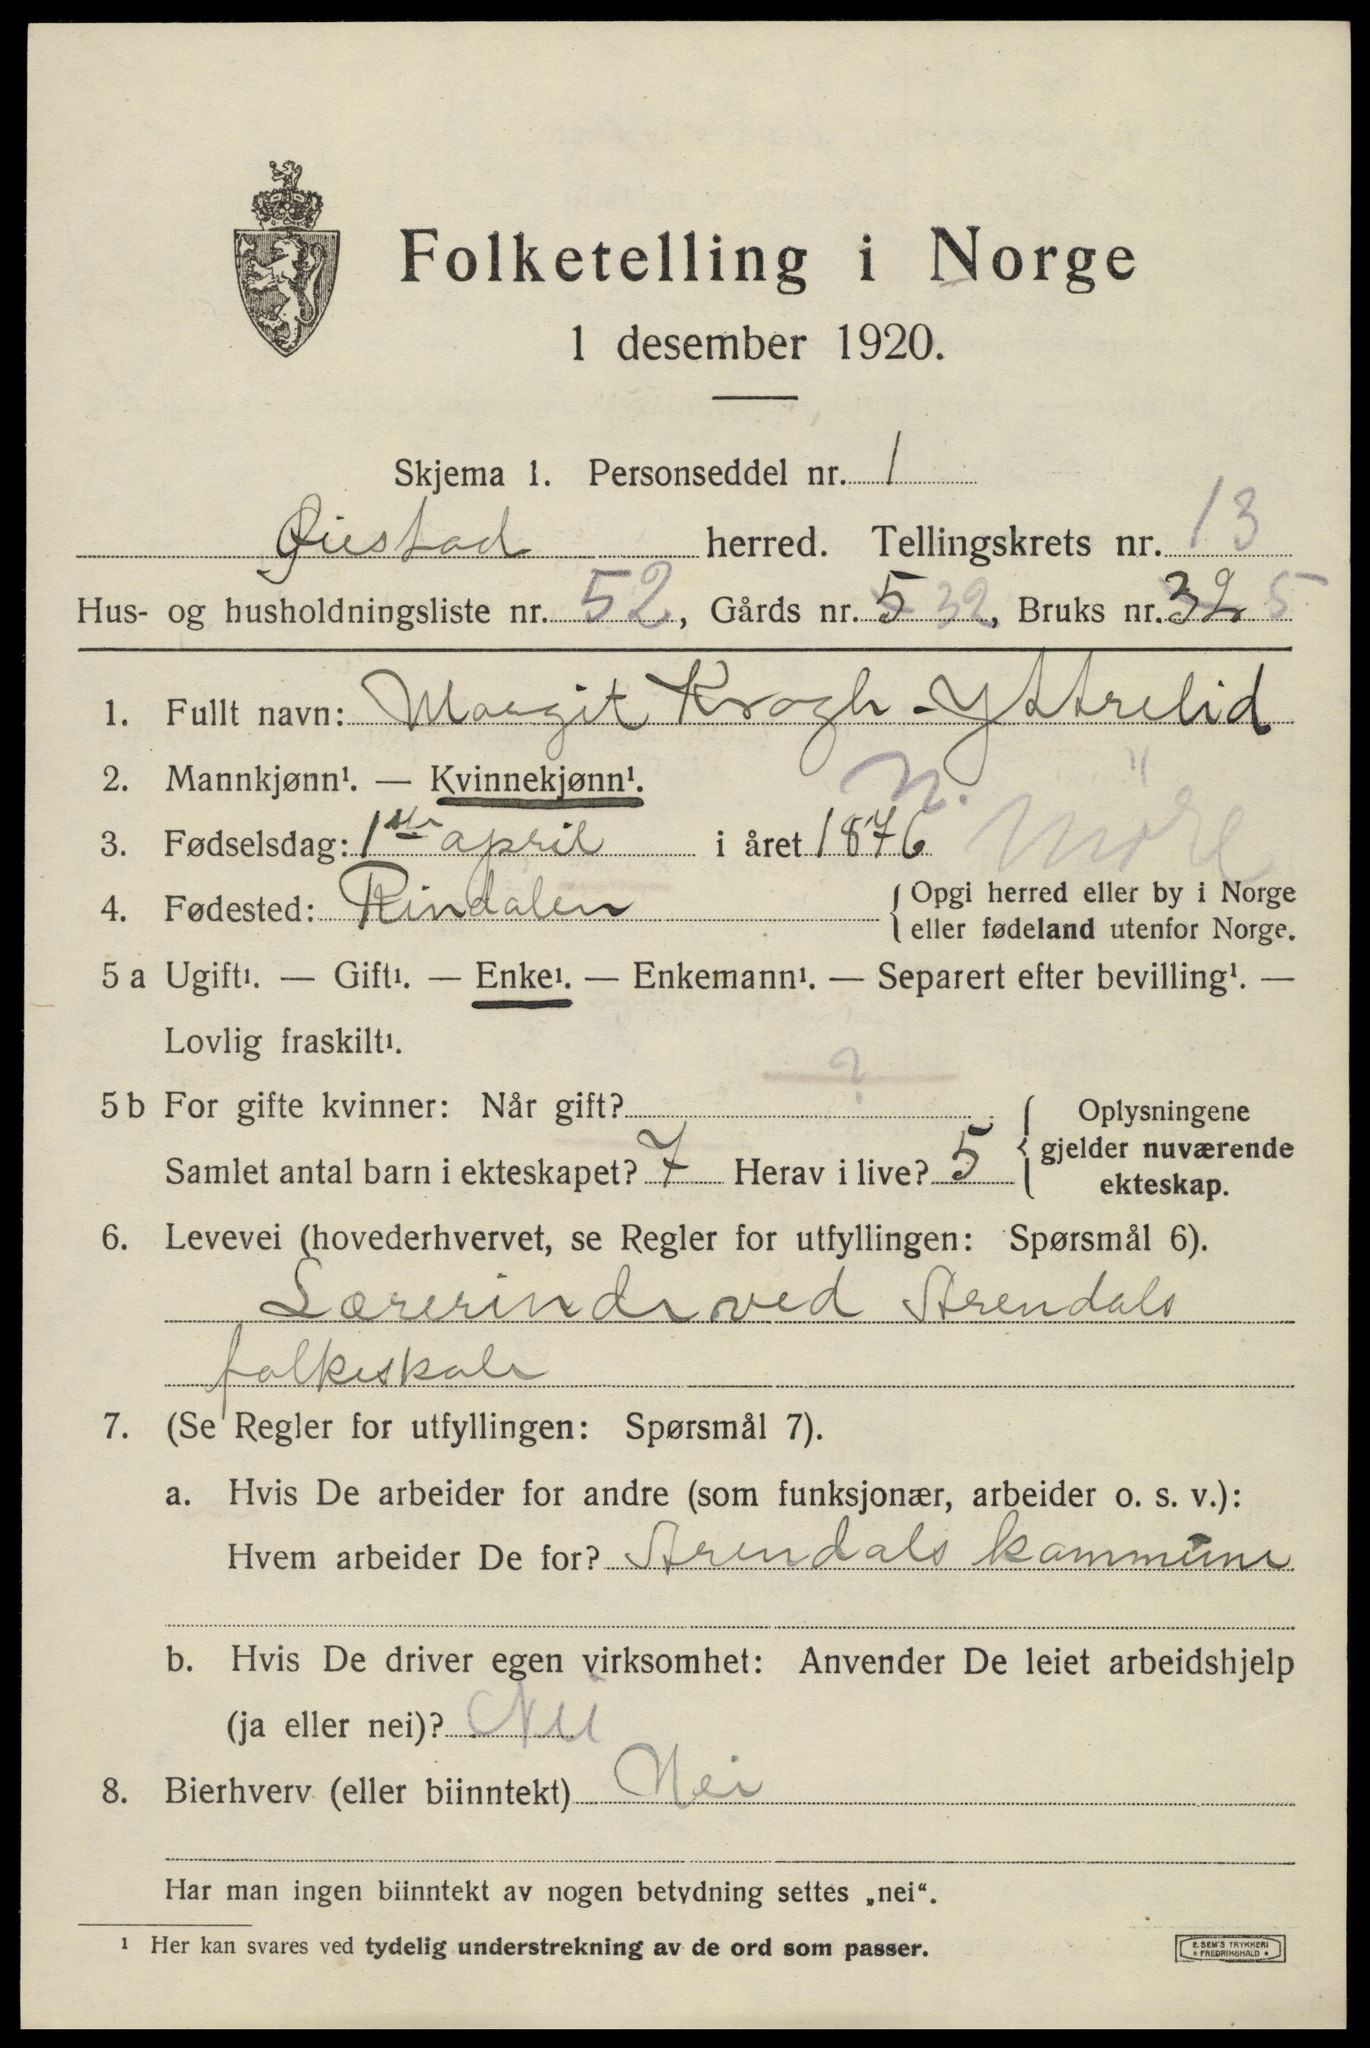 Folketelling i Norge
1 desember 1920.
Skjema 1. Personseddel nr. 1
Øiestad herred. Tellingskrets nr. 13
Hus- og husholdningsliste nr. 52, Gårds nr. 5 32, Bruks nr. 32 5
1. Fullt navn: Margit Krogh-Yttrelid
2. Mannkjønn¹. — Kvinnekjønn¹.
N. Möre
3. Fødselsdag: 1ste april i året 1876
4. Fødested: Rindalen { Opgi herred eller by i Norge
eller fødeland utenfor Norge.
5 a Ugift¹. — Gift¹. — Enke¹. — Enkemann¹. — Separert efter bevilling¹. —
Lovlig fraskilt¹.
?
5 b For gifte kvinner: Når gift?
Samlet antal barn i ekteskapet? 7 Herav i live? 5
{ Oplysningene
gjelder nuværende
ekteskap.
6. Levevei (hovederhvervet, se Regler for utfyllingen: Spørsmål 6).
Lærerinde ved Arendals
folkeskole
7. (Se Regler for utfyllingen: Spørsmål 7).
a. Hvis De arbeider for andre (som funksjonær, arbeider o. s. v.):
Hvem arbeider De for? Arendals kommune
b. Hvis De driver egen virksomhet: Anvender De leiet arbeidshjelp
(ja eller nei)? Nei
8. Bierhverv (eller biinntekt) Nei
Har man ingen biinntekt av nogen betydning settes „nei“.
¹ Her kan svares ved tydelig understrekning av de ord som passer.
E. SEM'S TRYKKERI
FREDRIKSHALD